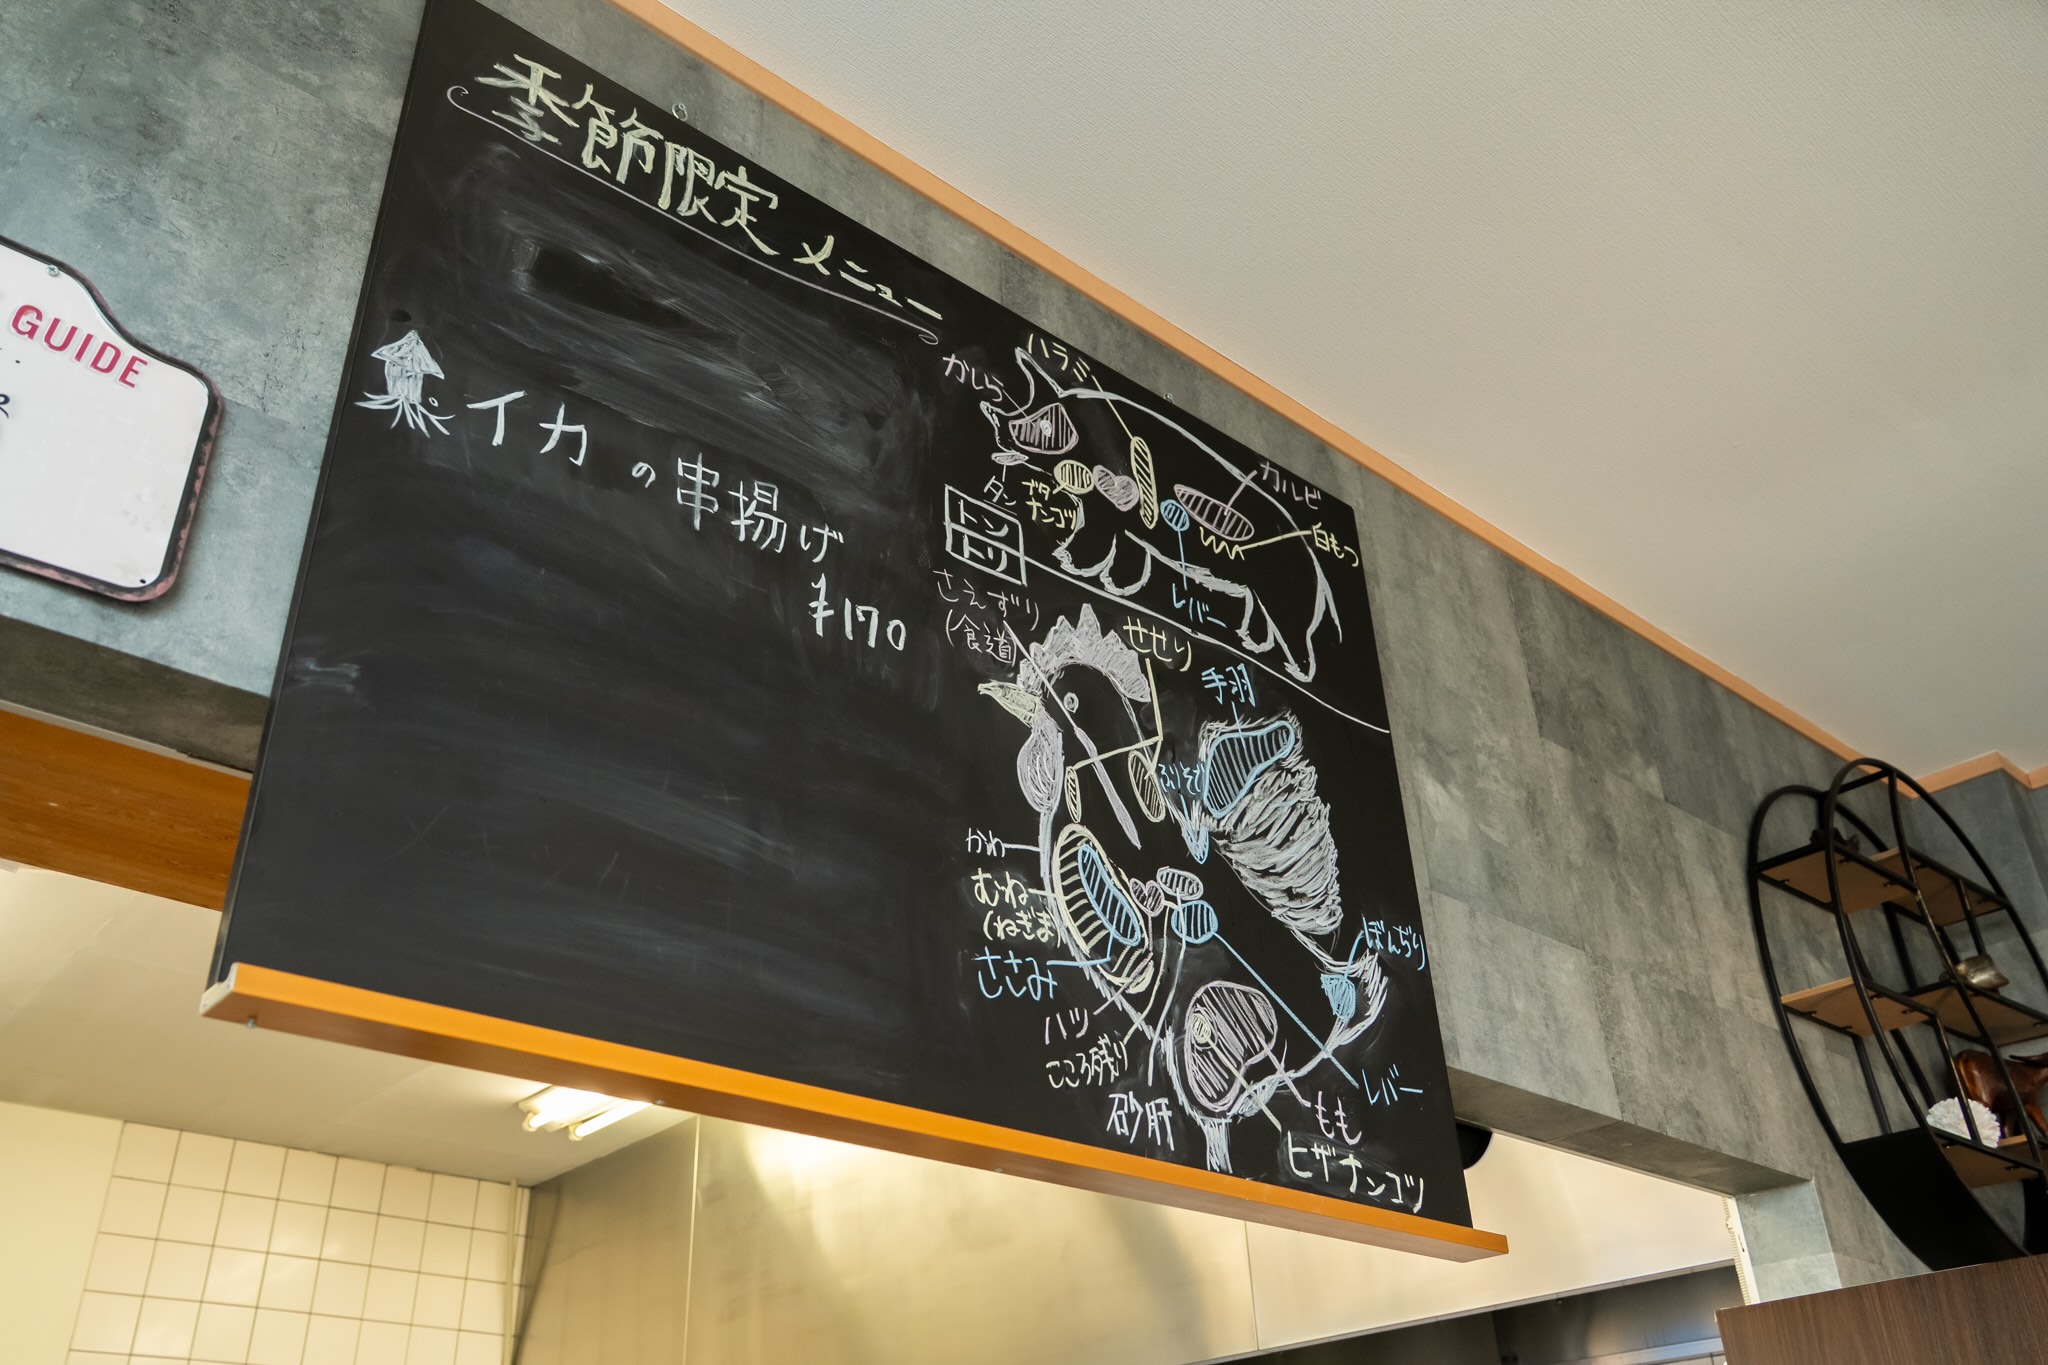 GUIDE
季節限定メニュー
イカの串揚げ
¥170
ハラミ
かしら
タン
ブタナンコツ
カルビ
白もつ
レバー
トン
トリ
さえずり
(食道)
せせり
手羽
ふりそで
かわ
むね
(ねぎま)
ささみ
ハツ
こころ残り
砂肝
ぼんぢり
レバー
もも
ヒザナンコツ